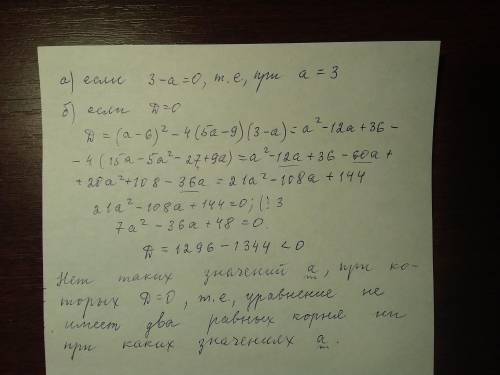 а) если 3-а=0, т.е, при а = 3
б) если D=0
D = (а-6)² - 4(5а-9)(3-а) = а²-12а+36-
-4(15а-5а²-27+9а) = а²-12а+36-60а+
+20а²+108-36а = 21а²-108а+144
21а²-108а+144=0; (:3
7а²-36а+48=0.
D = 1296-1344 < 0
Нет таких значений а, при ко-
торых D=0, т.е, уравнение не
имеет два равных корня ни
при каких значениях а.